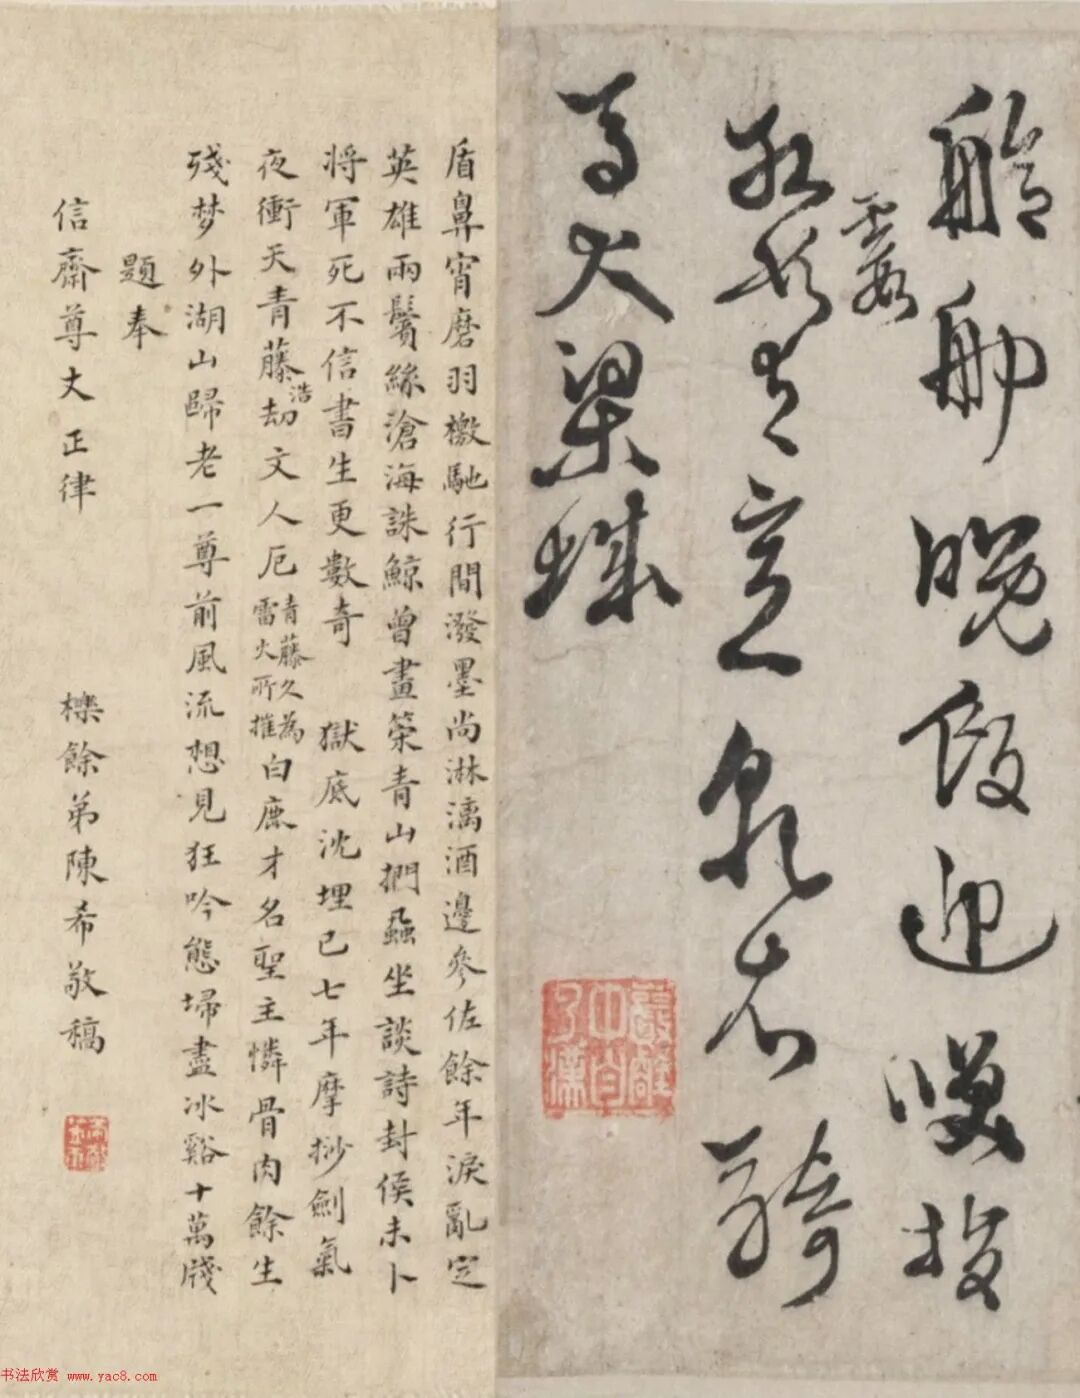 舩舫晩

定泉石騎
馬大梁城
盾鼻宵磨羽檄馳行間潑墨尚淋漓酒邊參佐餘年淚亂定
英雄兩鬢絲滄海誅鯨曾畫策青山捫蝨坐談詩封侯未卜
將軍死不信書生更數奇 獄底沈埋已七年摩挲劍氣
夜衝天青藤浩劫文人厄青藤久為雷火所摧白鹿才名聖主憐骨肉餘生
殘梦外湖山歸老一尊前風流想見狂吟態埽盡冰谿十萬牋
題奉
信齋尊丈正律
櫟餘弟陳希敬稿
书法欣赏 www.yac8.com